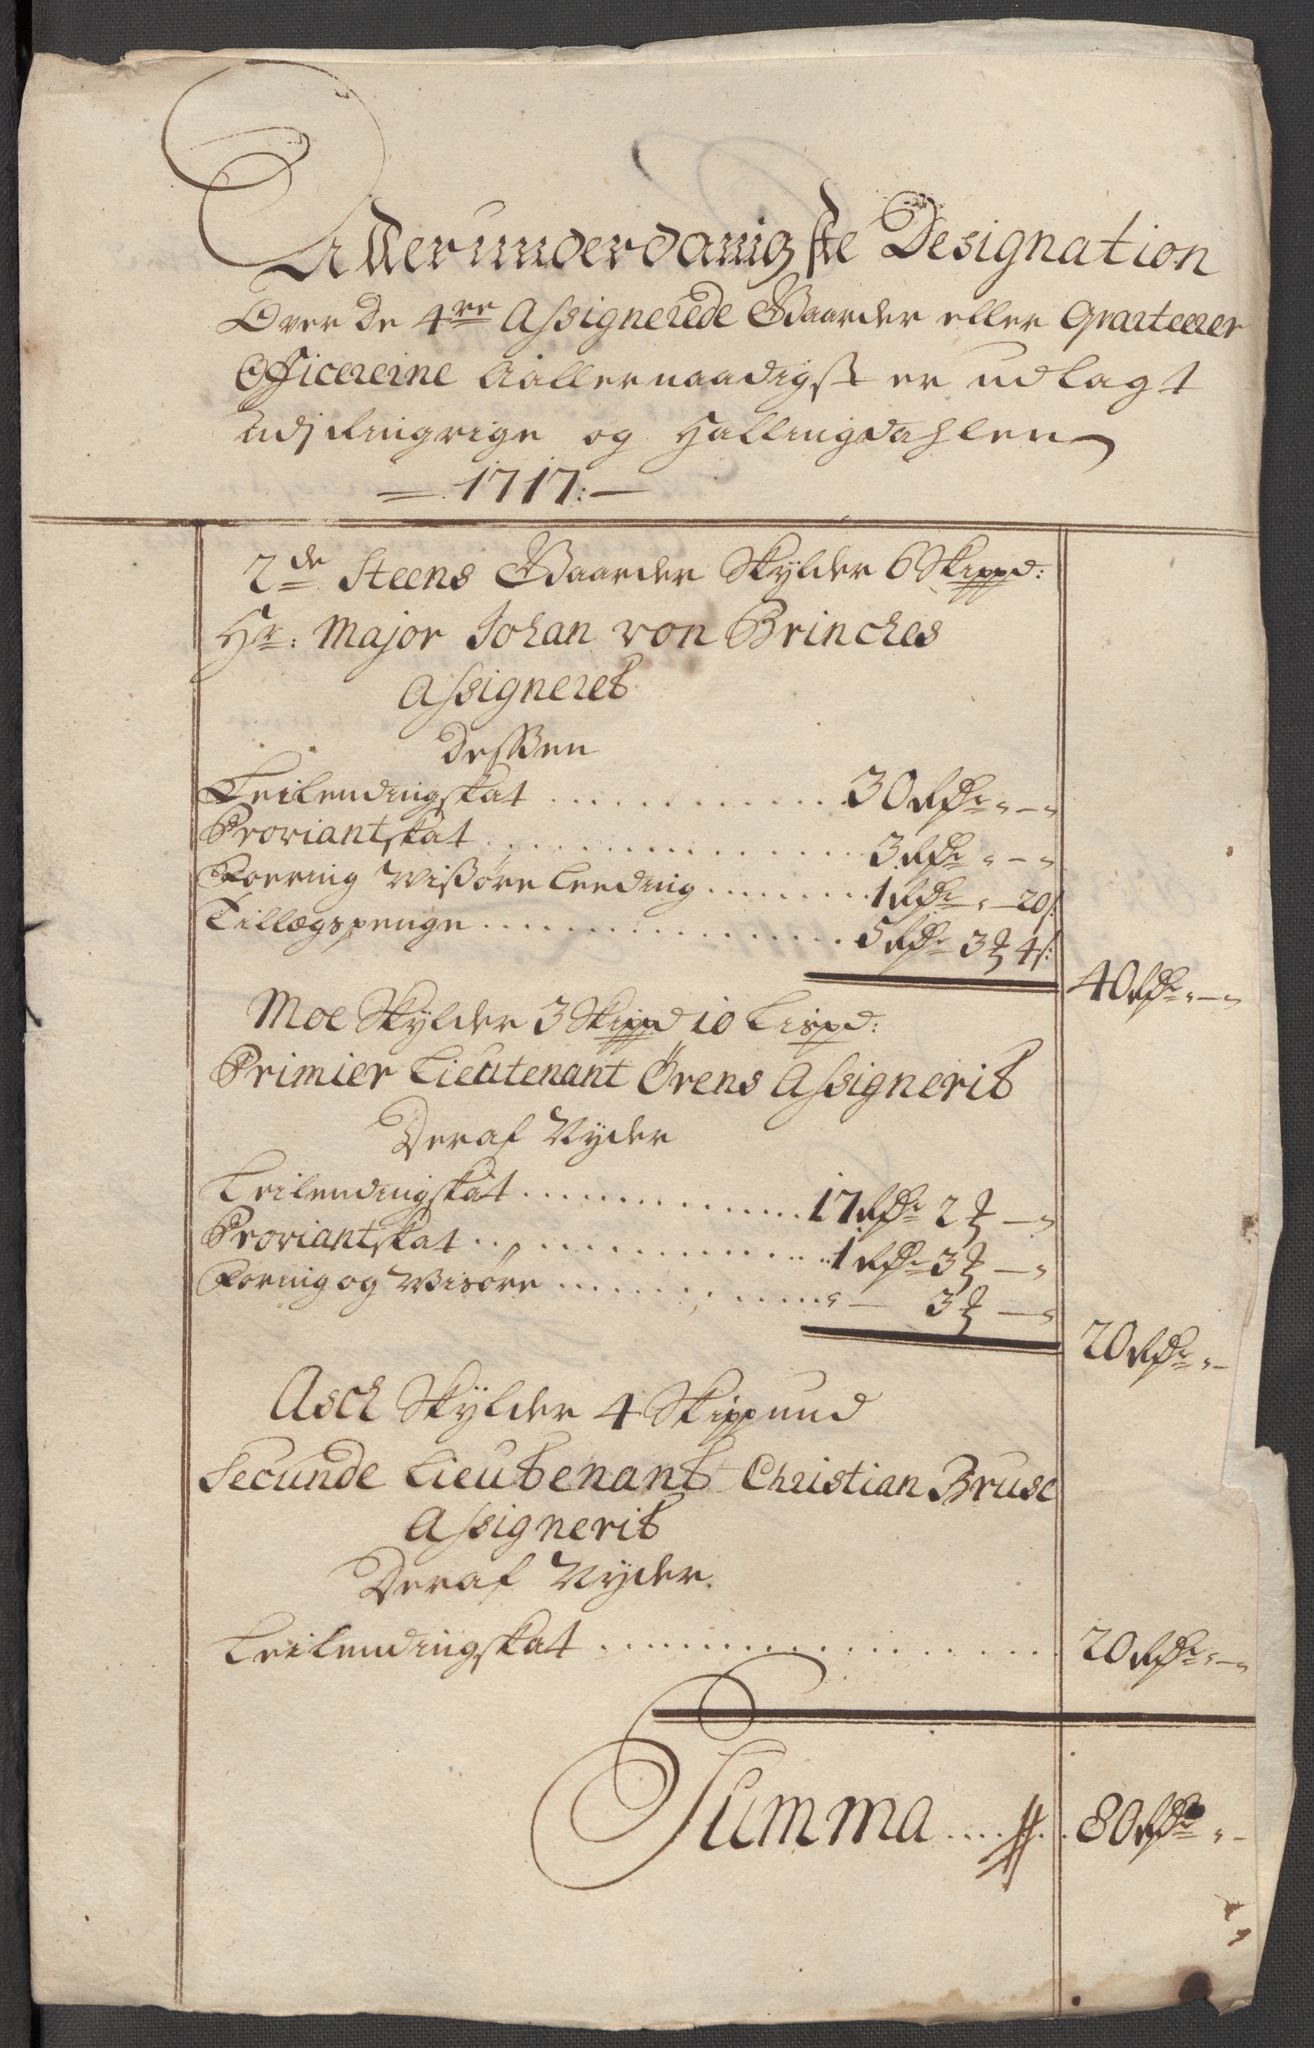 Allerunderdanigste Designation
Over De 4re Assignerede Gaarder eller Qvarteerer
Officererne Aallernaadigst er udlagt
udj Ringrige og Hallingdahlen
1717:
2de Steens Gaarder Skylder 6 Skippd:
Hr: Major Johan von Brinches
Assigneret
Dessen
Leilendingskat . . . 30 Rdr " — "
Proviantskat . . . 3 Rdr " — "
Foering Wisøre Leeding . . . 1 Rdr " — 20 s:
Tillegspenge . . . 5 Rdr 3 ℥ 4 s:
40 Rdr " — "
Moe Skylder 3 Skippd 10 Lispd:
Primier Lieutenant Örens Assignerit
Deraf Nyder
Leilendingskat . . . 17 Rdr 2 ℥ — "
Proviantskat . . . 1 Rdr 3 ℥ — "
Foring og Wisøre . . . " — 3 ℥ — "
20 Rdr " —
Asch Skylder 4 Skippund
Secunde Lieutenant Christian Bruse
Assignerit
Deraf Nyder.
Leilendingskat . . . 20 Rdr " — "
Summa . . . . 80 Rdr " —